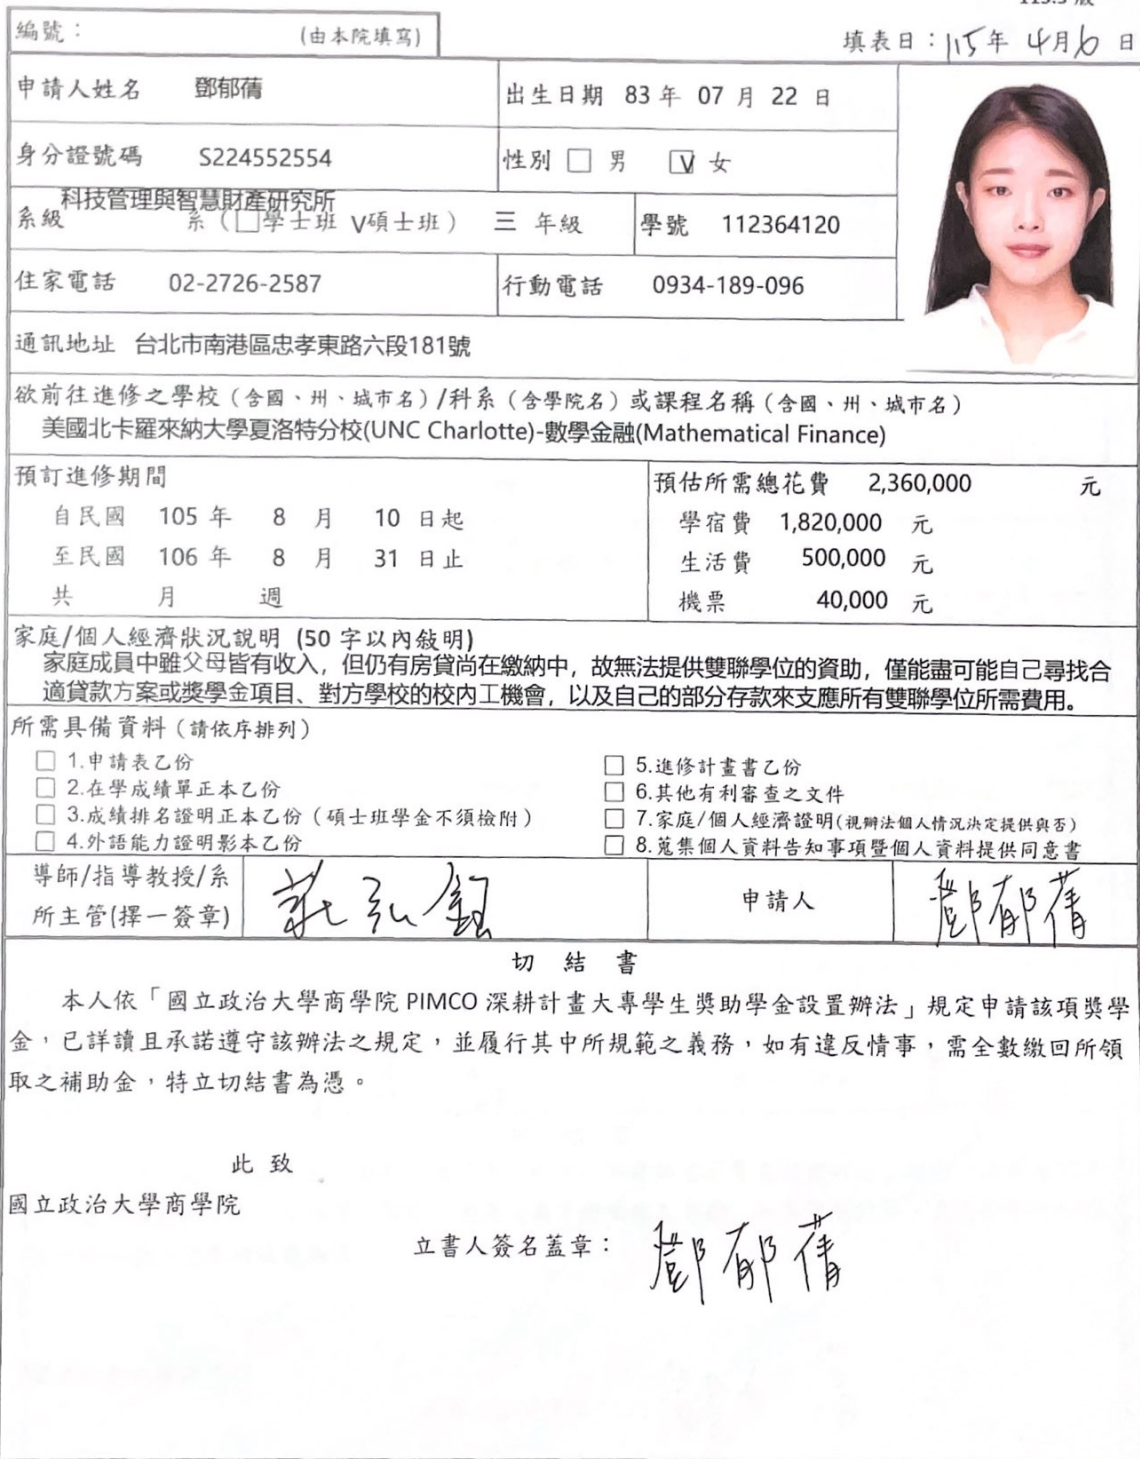 編號： (由本院填寫)
填表日：115年 4月6日
申請人姓名 鄧郁蒨 出生日期 83 年 07 月 22 日
身分證號碼 S224552554 性別 □ 男 ☑ 女
科技管理與智慧財產研究所
系級 系（□學士班 V碩士班） 三 年級 學號 112364120
住家電話 02-2726-2587 行動電話 0934-189-096
通訊地址 台北市南港區忠孝東路六段181號
欲前往進修之學校（含國、州、城市名）/科系（含學院名）或課程名稱（含國、州、城市名）
美國北卡羅來納大學夏洛特分校(UNC Charlotte)-數學金融(Mathematical Finance)
預訂進修期間 預估所需總花費 2,360,000 元
自民國 105 年 8 月 10 日起 學宿費 1,820,000 元
至民國 106 年 8 月 31 日止 生活費 500,000 元
共 月 週 機票 40,000 元
家庭/個人經濟狀況說明 (50 字以內敍明)
家庭成員中雖父母皆有收入，但仍有房貸尚在繳納中，故無法提供雙聯學位的資助，僅能盡可能自己尋找合
適貸款方案或獎學金項目、對方學校的校內工機會，以及自己的部分存款來支應所有雙聯學位所需費用。
所需具備資料（請依序排列）
□ 1.申請表乙份 □ 5.進修計畫書乙份
□ 2.在學成績單正本乙份 □ 6.其他有利審查之文件
□ 3.成績排名證明正本乙份（碩士班學金不須檢附） □ 7.家庭/個人經濟證明(視辦法個人情況決定提供與否)
□ 4.外語能力證明影本乙份 □ 8.蒐集個人資料告知事項暨個人資料提供同意書
導師/指導教授/系
所主管(擇一簽章) 莊弘鈺 申請人 鄧郁蒨
切 結 書
本人依「國立政治大學商學院 PIMCO 深耕計畫大專學生獎助學金設置辦法」規定申請該項獎學
金，已詳讀且承諾遵守該辦法之規定，並履行其中所規範之義務，如有違反情事，需全數繳回所領
取之補助金，特立切結書為憑。
此 致
國立政治大學商學院
立書人簽名蓋章： 鄧郁蒨